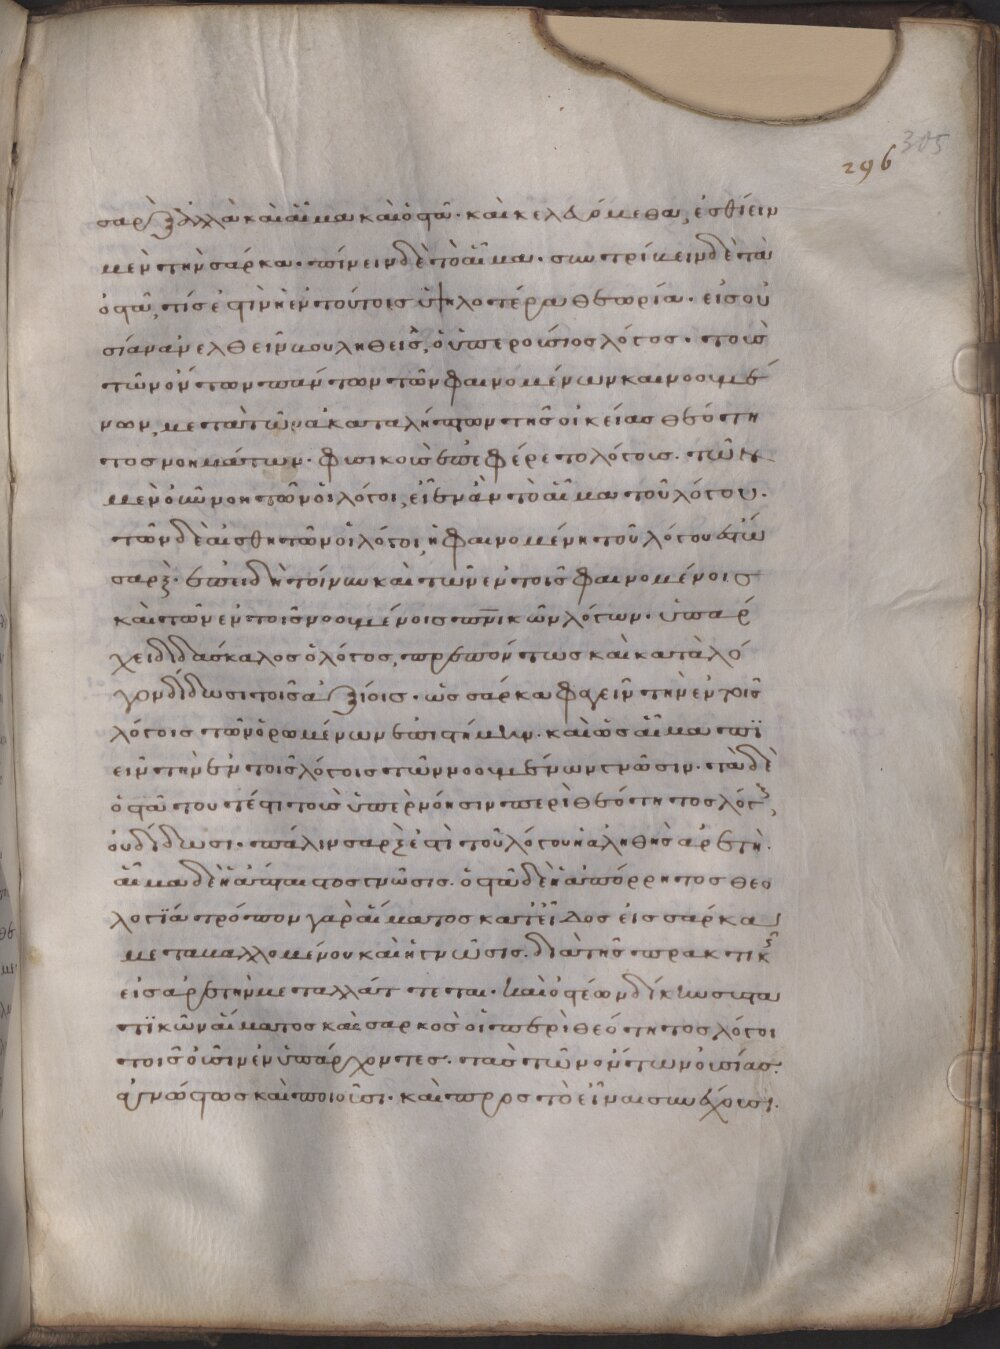 σὰρξ ἀλλὰ καὶ αἷμα καὶ ὀστᾶ· καὶ κελευόμεθα, ἐσθίειν
μὲν τὴν σάρκα· πίνειν δὲ τὸ αἷμα· συντρίβειν δὲ τὰ
ὀστᾶ, τίς ἐστιν ἡ ἐν τούτοις ὑψηλοτέρα θεωρία· εἰς οὐ
σίαν ἀνελθεῖν βουληθεὶς, ὁ ὑπερούσιος λόγος· τοὺς
τῶν ὄντων πάντων τῶν φαινομένων καὶ νοουμέ
νων, μετὰ τῶν ἀκαταλήπτων τῆς οἰκείας θεότη
τος νοημάτων· φυσικοὺς ἐπεφέρετο λόγους· τῶν
μὲν οὖν νοητῶν οἱ λόγοι, εἶεν ἂν τὸ αἷμα τοῦ λόγου·
τῶν δὲ αἰσθητῶν οἱ λόγοι, ἡ φαινομένη τοῦ λόγου ἐστὶ
σάρξ· ἐπειδὴ τοίνυν καὶ τῶν ἐν τοῖς φαινομένοις
καὶ τῶν ἐν τοῖς νοουμένοις πνικῶν λόγων· ὑπάρ
χει διδάσκαλος ὁ λόγος, πρεπόντως καὶ κατὰ λό
γον δίδωσι τοῖς ἀξίοις· ὡς σάρκα φαγεῖν τὴν ἐν τοῖς
λόγοις τῶν ὁρωμένων ἐπιστήμην· καὶ ὡς αἷμα πϊ
εῖν τὴν ἐν τοῖς λόγοις τῶν νοουμένων γνῶσιν· τὰ δὲ
ὀστᾶ τουτέστι τοὺς ὑπὲρ νόησιν περὶ θεότητος λόγους,
οὐ δίδωσι· πάλιν σάρξ ἐστι τοῦ λόγου ἡ ἀληθὴς ἀρετὴ·
αἷμα δὲ ἡ ἄπταιστος γνῶσις· ὀστᾶ δὲ ἡ ἀπόρρητος θεο
λογία τρόπον γὰρ αἵματος κατ' εἶδος εἰς σάρκα
μεταβαλλομένου καὶ ἡ γνῶσις· διὰ τῆς πρακτικῆς
εἰς ἀρετὴν μεταλλάττεται· καὶ ὀστέων δίκην συστα
τϊκῶν αἵματος καὶ σαρκὸς οἱ περὶ θεότητος λόγοι
τοῖς οὖσιν ἐνυπάρχοντες· τὰς τῶν ὄντων οὐσίας·
ἀγνώστως καὶ ποιοῦσι· καὶ πρὸς τὸ εἶναι συνέχουσι·